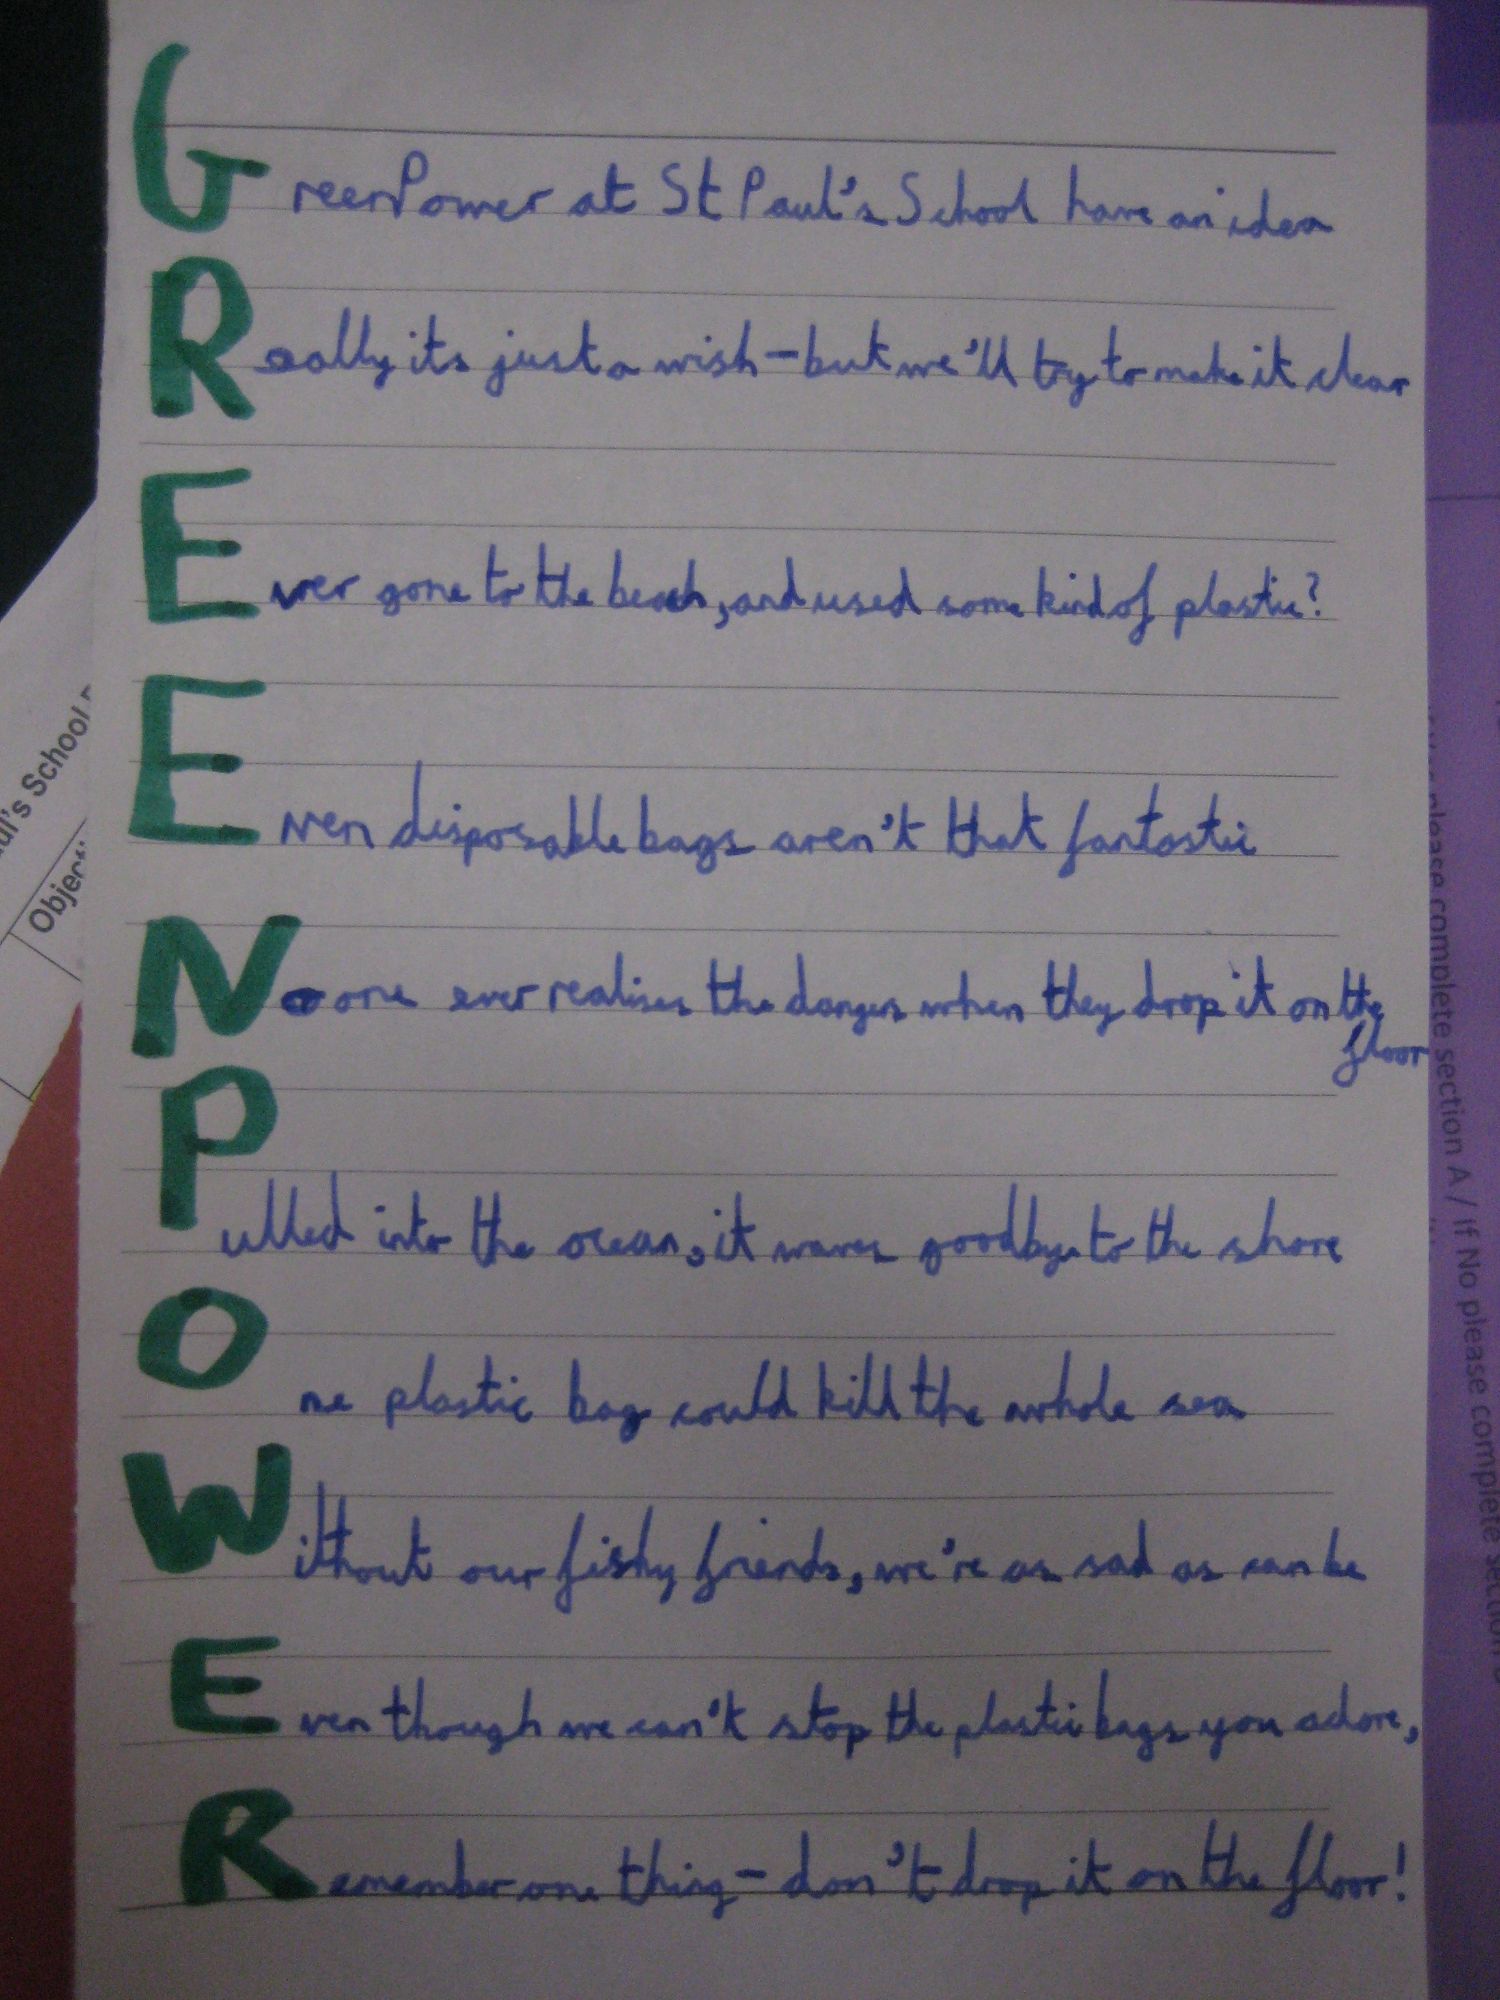 GreenPower at St Paul's School have an idea
Really its just a wish - but we'll try to make it clear
Ever gone to the beach, and used some kind of plastic?
Even disposable bags aren't that fantastic
No one ever realises the dangers when they drop it on the
floor
Pulled into the ocean, it waves goodbye to the shore
One plastic bag could kill the whole sea
Without our fishy friends, we're as sad as can be
Even though we can't stop the plastic bags you adore,
Remember one thing - don't drop it on the floor!
ul's School
Objec
please complete section A / if No please complete section